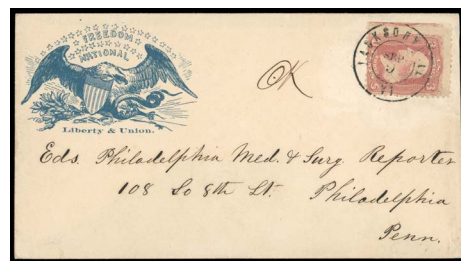 FREEDOM
NATIONAL
Liberty & Union.
OK
Eds. Philadelphia Med. & Surg. Reporter
108 So 8th St. Philadelphia
Penn.